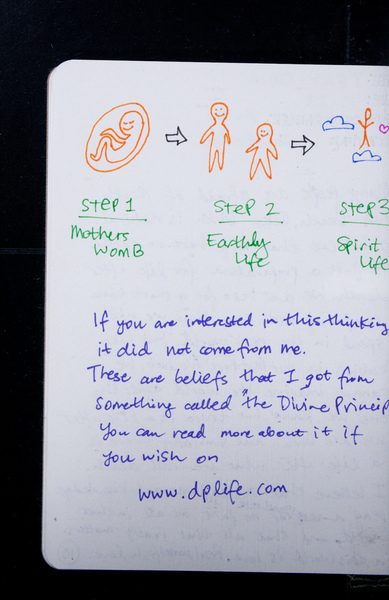 STEP 1
Mothers
WomB
STEP 2
Earthly
Life
STEP 3
Spirit
Life
If you are interested in this thinking
it did not come from me.
These are beliefs that I got from
something called "the Divine Princip
You can read more about it if
you wish on
www.dplife.com